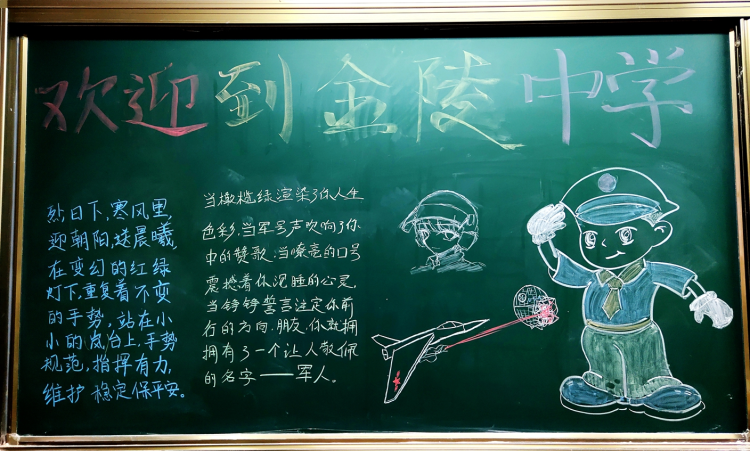 欢迎到金陵中学
烈日下,寒风里,
迎朝阳,送晨曦,
在变幻的红绿
灯下,重复着不变
的手势,站在小
小的岗台上,手势
规范,指挥有力,
维护稳定保平安。
当橄榄绿渲染了你人生
色彩,当军号声吹响了你
中的赞歌,当嘹亮的口号
震撼着你沉睡的心灵,
当铮铮誓言注定你前
行的方向,朋友,你就拥
拥有了一个让人敬佩
的名字——军人。